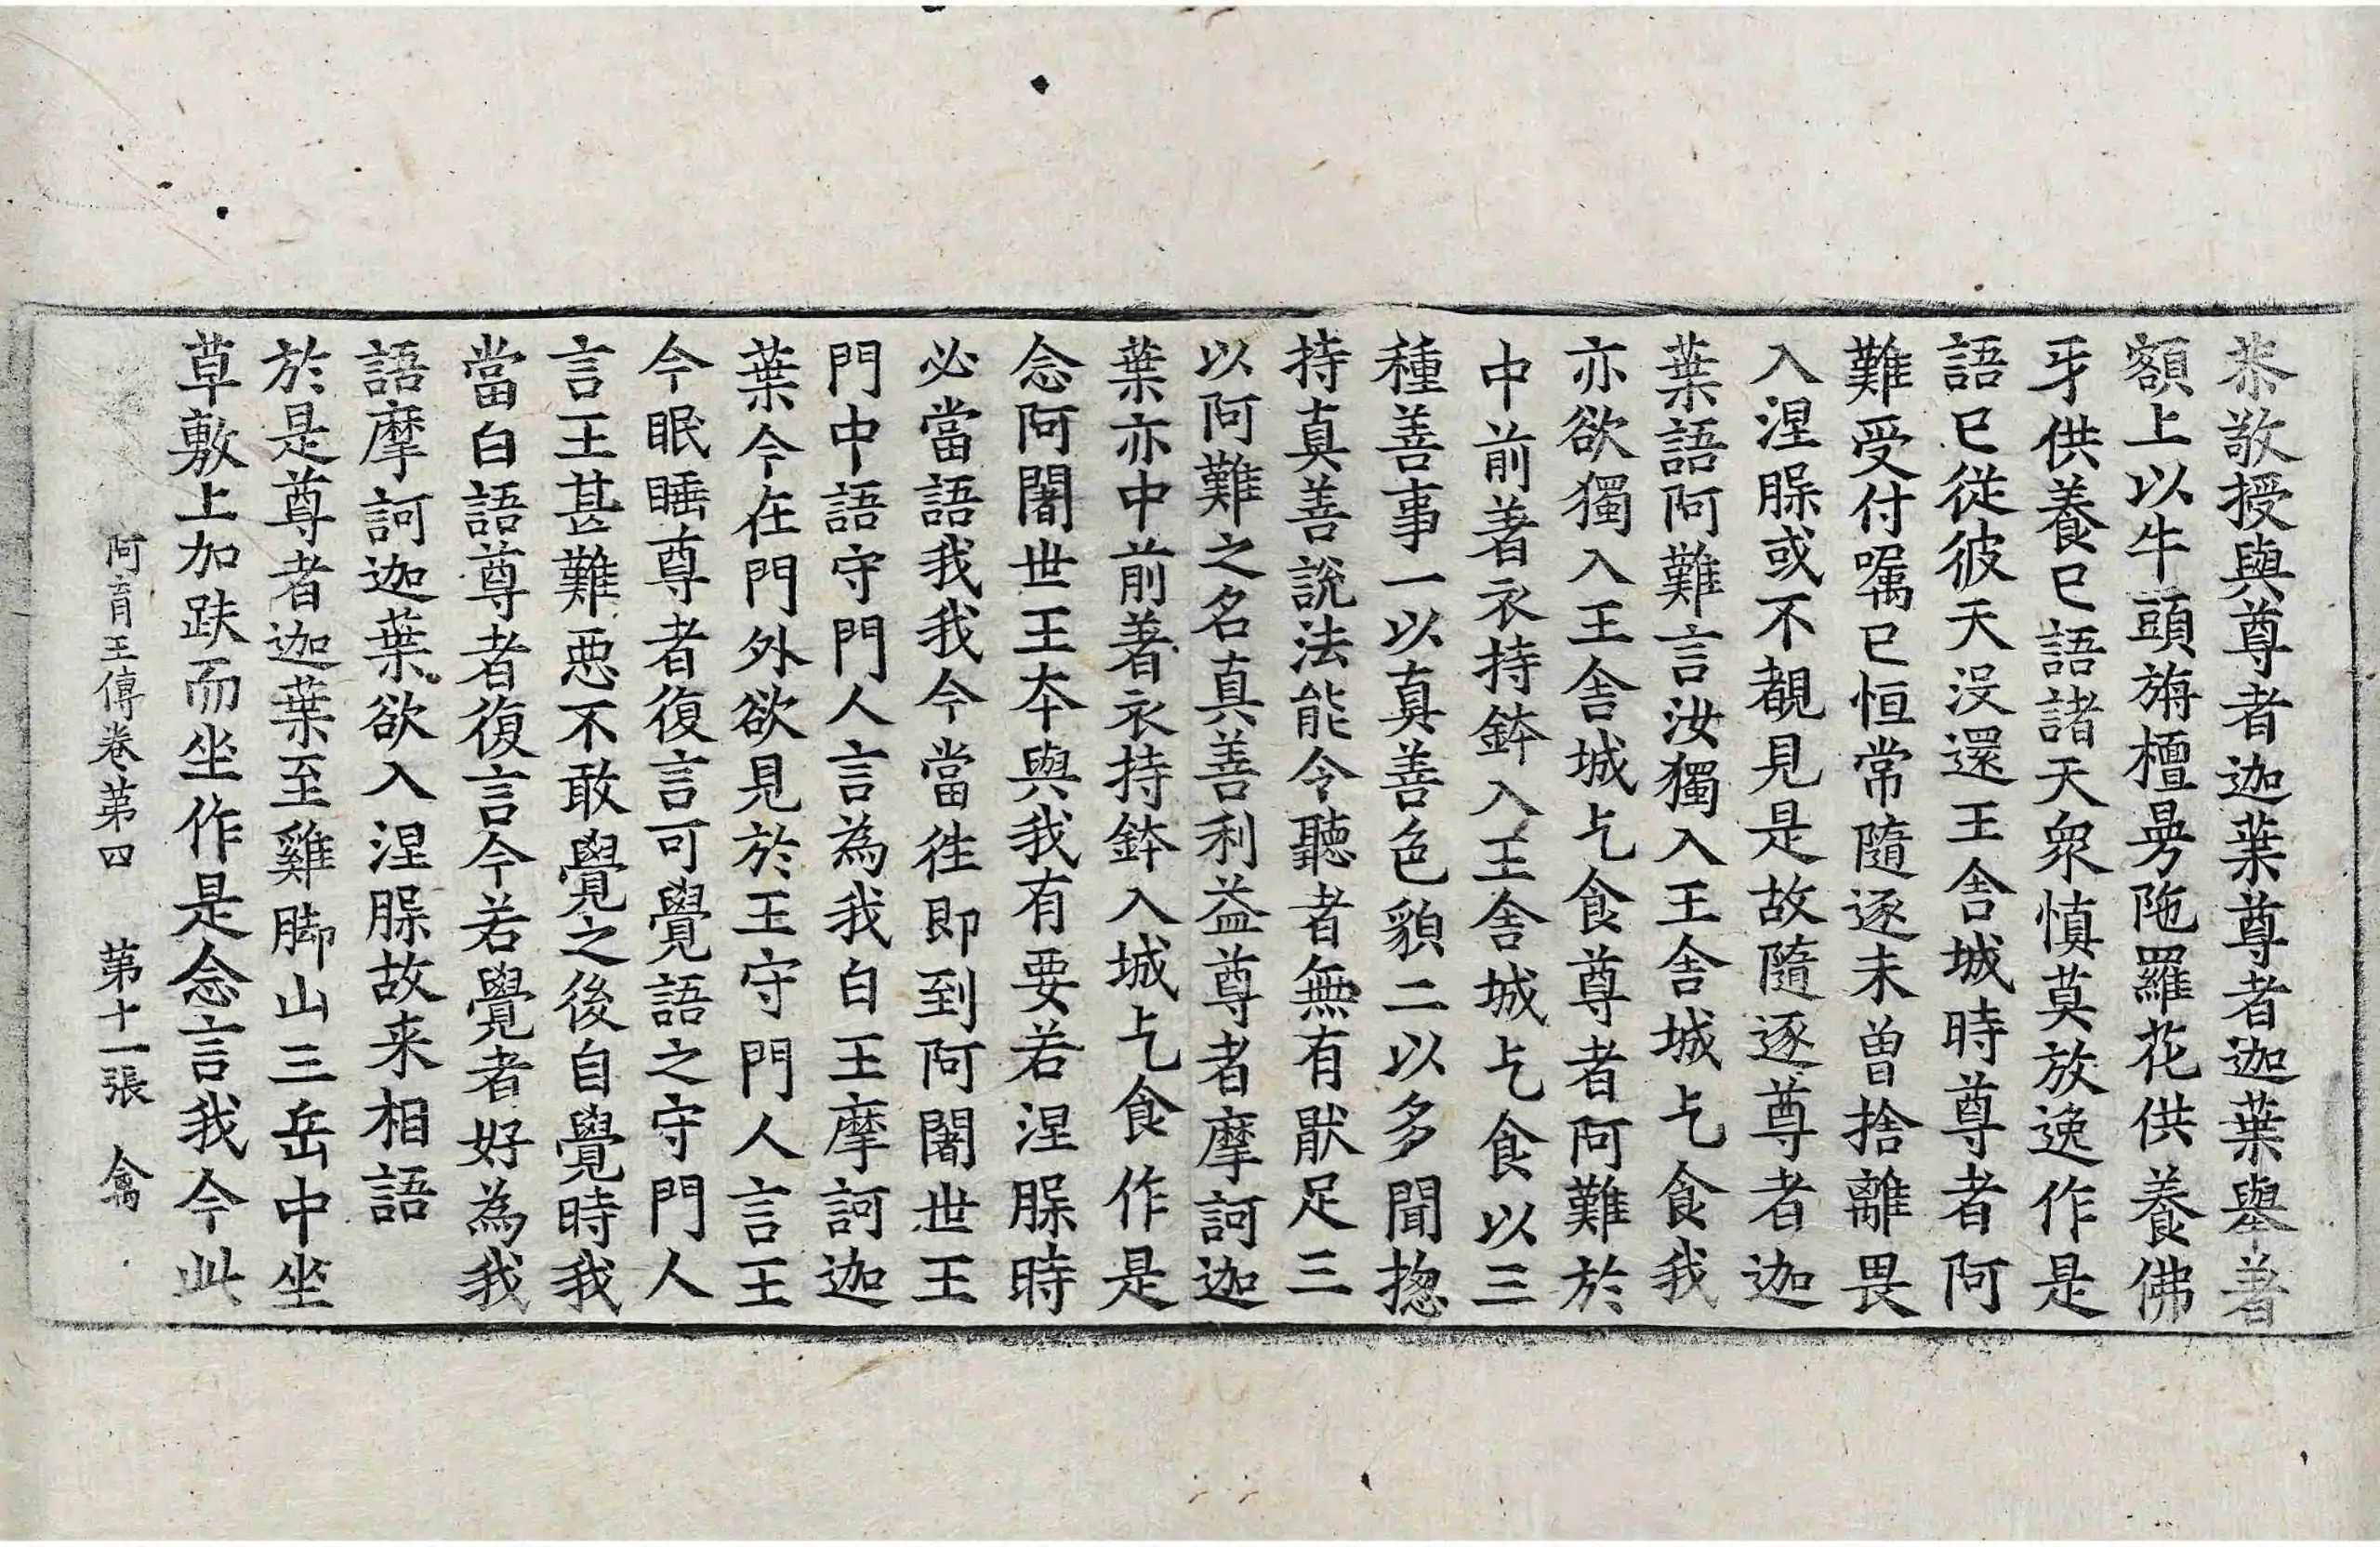 恭敬授與尊者迦葉尊者迦葉舉著
額上以牛頭旃檀曼陁羅花供養佛
牙供養已語諸天衆慎莫放逸作是
語已從彼天沒還王舍城時尊者阿
難受付嘱已恒常隨逐未曽捨離畏
入涅脲或不覩見是故隨逐尊者迦
葉語阿難言汝獨入王舍城乞食我
亦欲獨入王舍城乞食尊者阿難於
中前著衣持鉢入王舍城乞食以三
種善事一以真善色貌二以多聞揔
持真善說法能令聽者無有猒足三
以阿難之名真善利益尊者摩訶迦
葉亦中前著衣持鉢入城乞食作是
念阿闍世王本與我有要若涅脲時
必當語我我今當往即到阿闍世王
門中語守門人言為我白王摩訶迦
葉今在門外欲見於王守門人言王
今眠睡尊者復言可覺語之守門人
言王甚難惡不敢覺之後自覺時我
當白語尊者復言今若覺者好為我
語摩訶迦葉欲入涅脲故来相語
於是尊者迦葉至雞脚山三岳中坐
草敷上加趺而坐作是念言我今此
阿育王傳卷第四　第十一張　禽